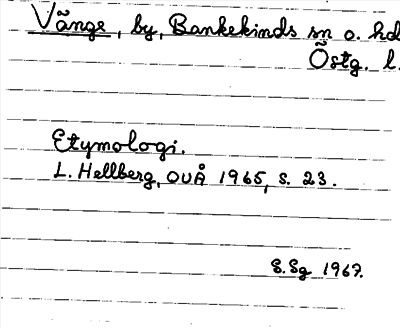 Vänge, by, Bankekinds sn o. hd
Östg. l.
Etymologi.
L. Hellberg, OUÅ 1965, s. 23.
S.Sg 1967.